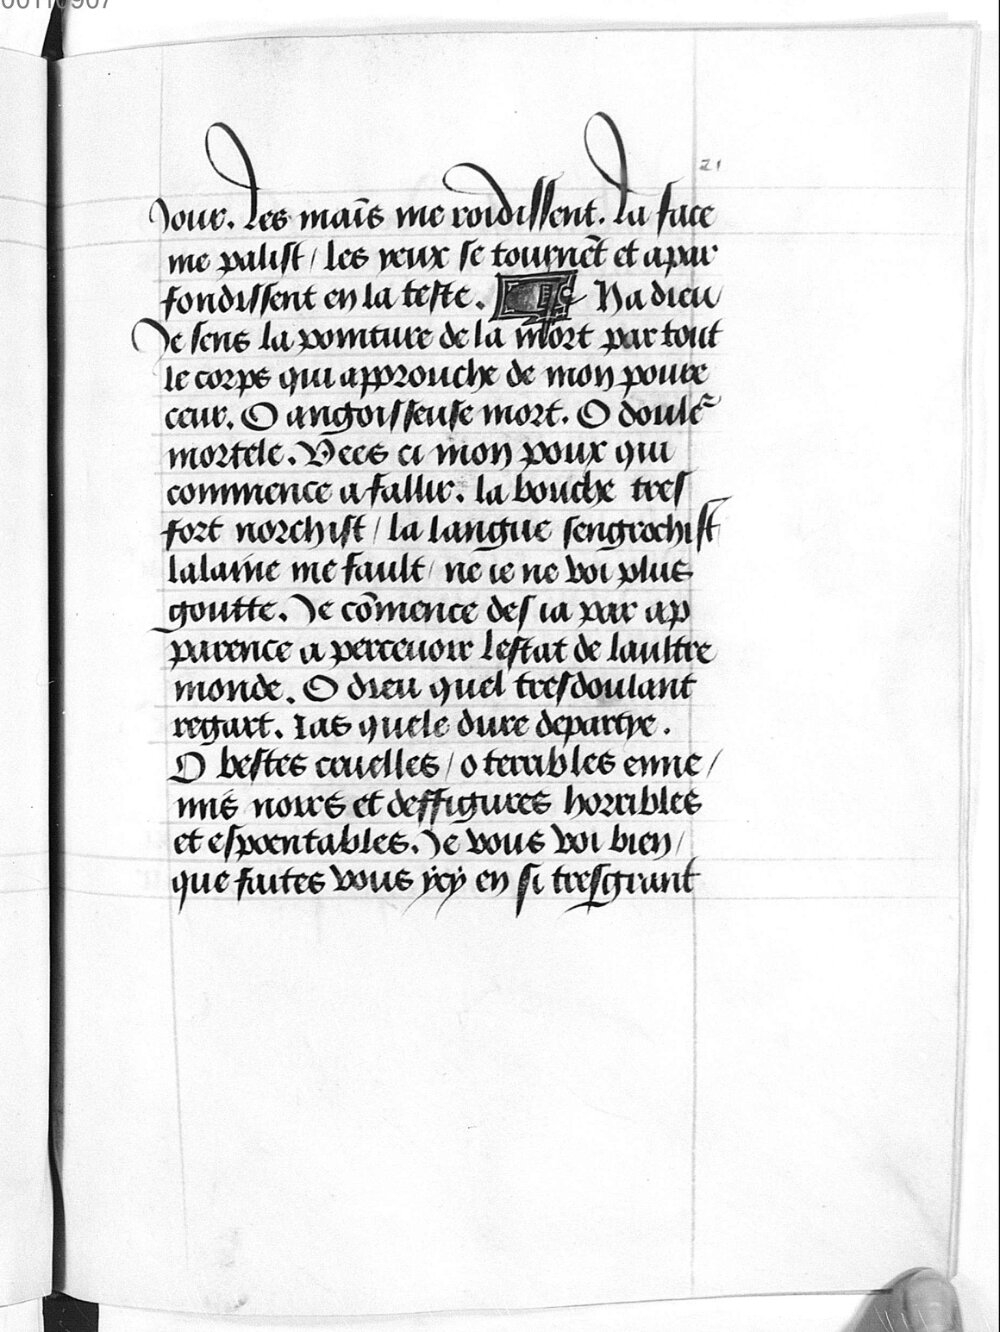 00110907
21
Jour. Les maīs me roidissent. La face
me palist / les yeux se tournēt et a par
fondissent en la teste. Ha dieu
Je sens la pointure de la mort par tout
le corps qui approuche de mon poure
ceur. O angoisseuse mort. O doule᷑
mortele. Vees ci mon poux qui
commence a fallir. la bouche tres
fort norchist / la langue sengrochist
lalaine me fault / ne ie ne voi plus
goutte. Je cōmence des ia par ap
parence a percevoir lestat de laultre
monde. O dieu quel tresdoulant
regart. Las quele dure departye.
O bestes cruelles / o terribles enne /
mis noirs et deffigures horribles
et espoentables. Je vous voi bien /
que faites vous ycy en si tresgrant